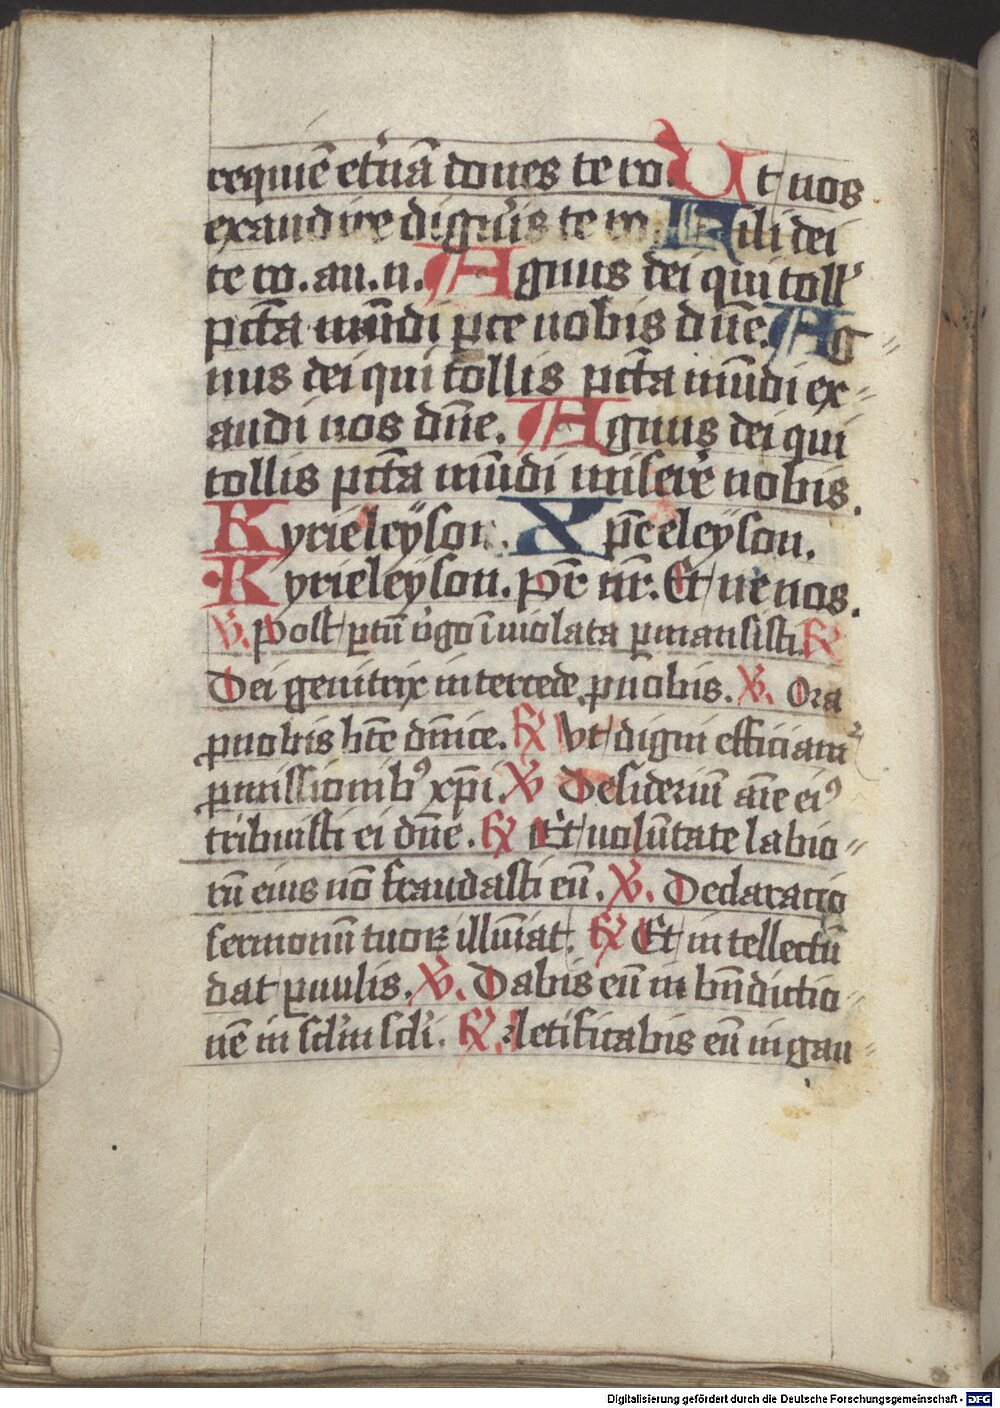 requiē et̾nā dones te ro. Ut nos
exaudire dign̾is te ro. Fili dei
te ro. au. n. Agnus dei qui toll̾
pctā mūdi pce nobis dn̄e. Ag
nus dei qui tollis pctā mūdi ex-
audi nos dn̄e. Agnus dei qui
tollis pctā mūdi miserē nobis.
Kyrieleyson. Xpē eleyson.
Kyrieleyson. Pr̄ nr̄. Et ne nos.
V̾. Post ꝑtū v̾go īviolata ꝑmansisti. R̾
Dei genitrix intercede ꝓ nobis. V̾. Ora
ꝓ nobis btē dn̄ice. R̾ Vt digni efficiam̾
ꝓmissionibꝰ xp̄i. V̾ Desideriū aīe eiꝰ
tribuisti ei dn̄e. R̾ Et volūtate labio-
rū eius nō fraudasti eū. V̾. Declaracio
sermonū tuoꝝ illūiat. R̾ Et intellectū
dat ꝑuulis. V̾. Dabis eū in bn̄dictio-
nē in scl̾m scl̾i. R̾. letificabis eū in gau-
Digitalisierung gefördert durch die Deutsche Forschungsgemeinschaft - DFG